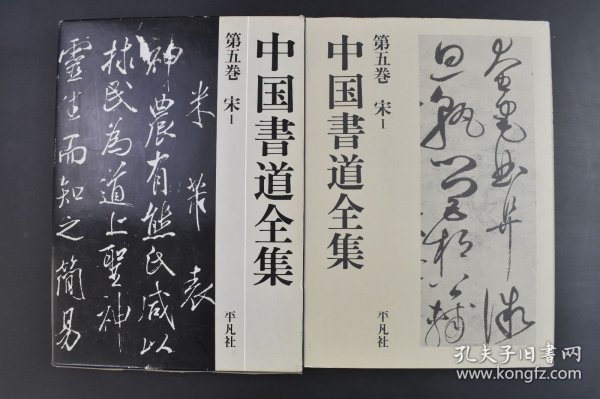 米芾表
神農有熊氏咸以
捄民為道上聖神
靈生而知之簡易
第五巻 宋1
中国書道全集
平凡社
第五巻 宋1
中国書道全集
平凡社
孔夫子旧書网
www.kongfz.com